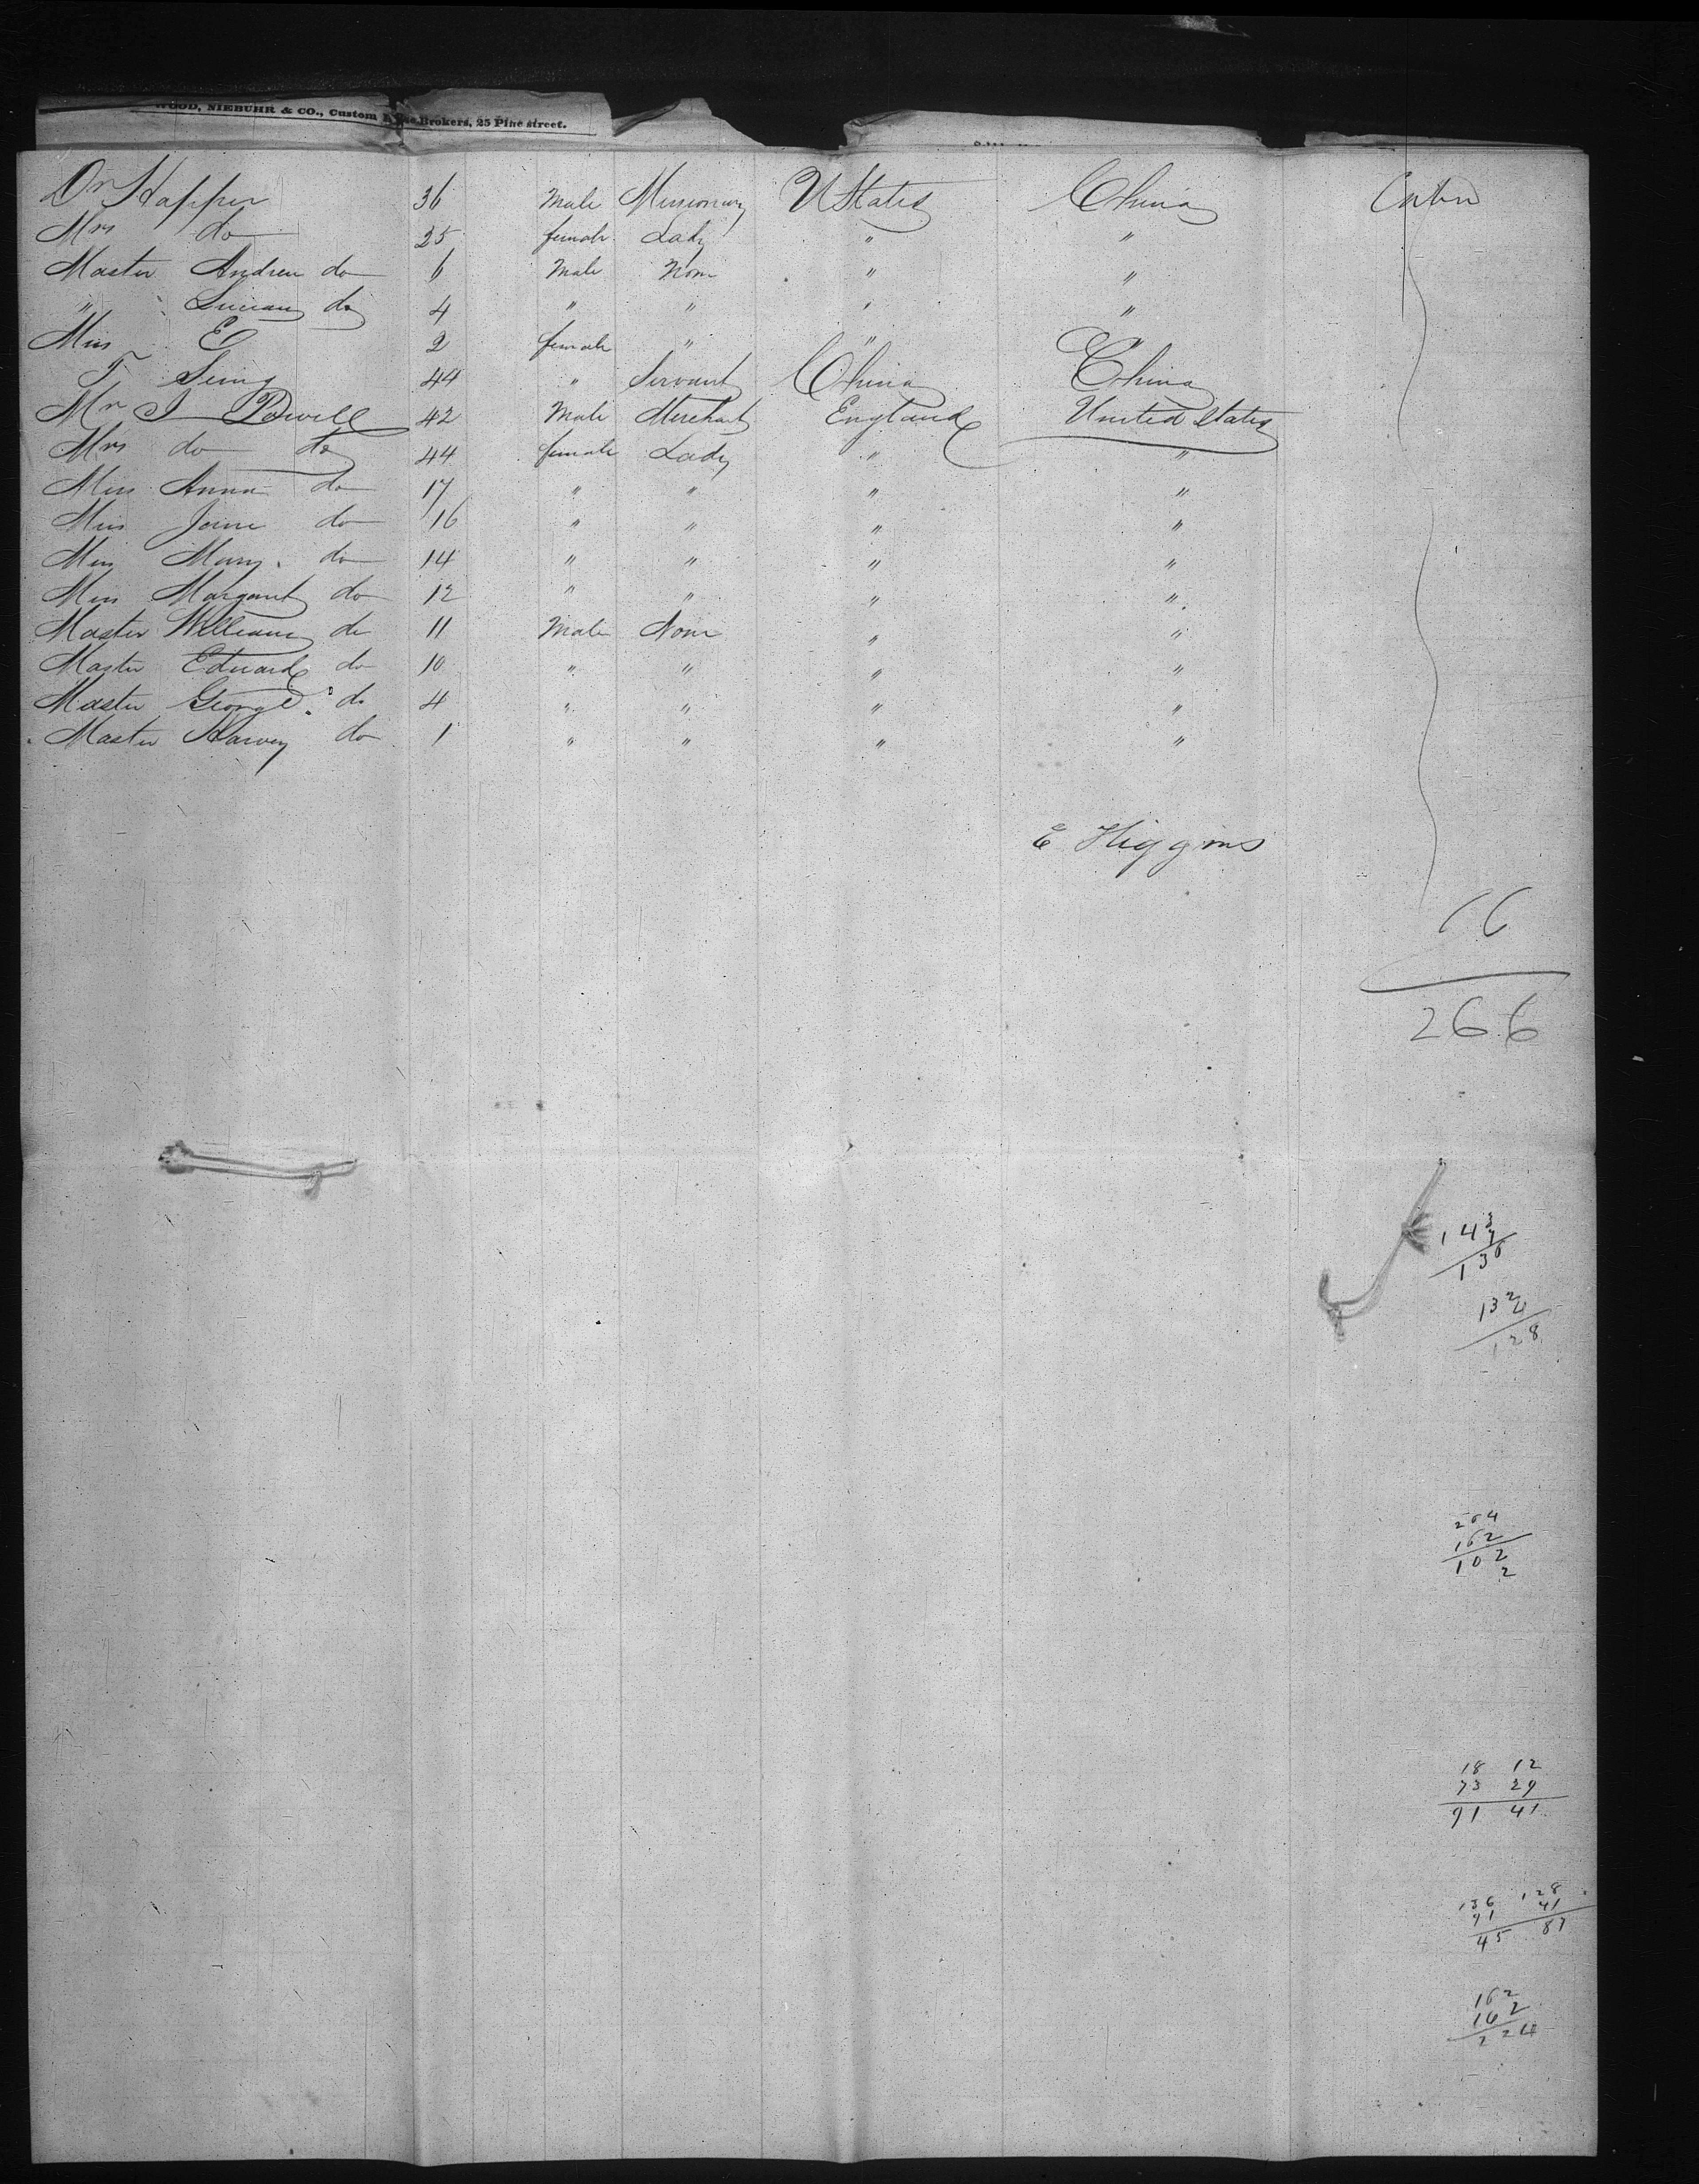 WOOD, NIEBUHR & CO., Custom Brokers, 25 Pine street.
Dr Happer 36 Male Missionary U States China Cabin
Mrs do 25 female Lady " "
Master Andrew do 6 Male None " "
" do 4 " " " "
Miss E 2 female " " "
T Seing 44 " Servant China China
Mr J Powell 42 Male Merchant England United States
Mrs do do 44 female Lady " "
Miss Anna do 17 " " " "
Miss Jane do 16 " " " "
Miss Mary do 14 " " " "
Miss Margaret do 12 " " " "
Master William do 11 Male None " "
Master Edward do 10 " " " "
Master George do 4 " " " "
Master Harvey do 1 " " " "
E Higgins
66
266
136
128
264
162
102
2
18 12
73 29
91 41
136 128
91 41
45 87
162
162
224